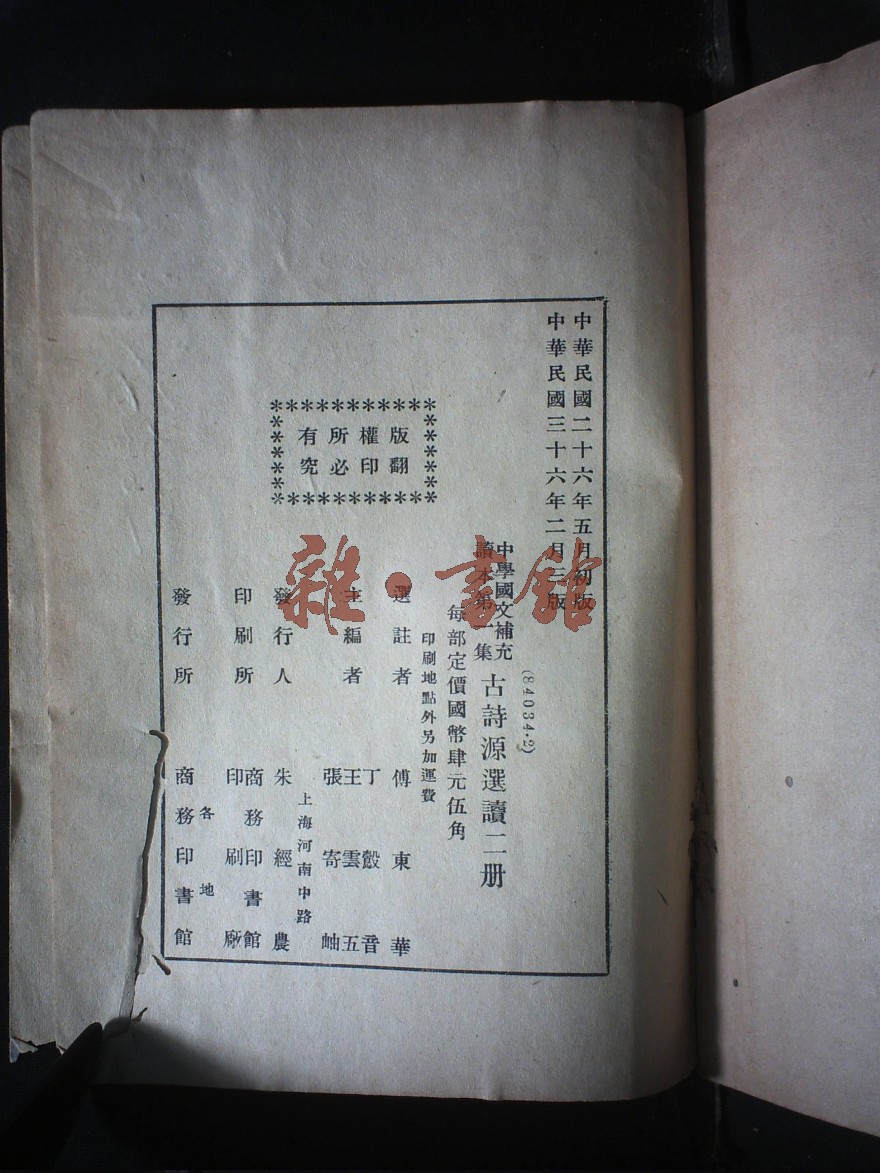 中華民國二十六年五月初版
中華民國三十六年二月三版
(84034·2)
中學國文補充
讀本第一集
古詩源選讀二册
每部定價國幣肆元伍角
印刷地點外另加運費
版權所有
翻印必究
選註者 傅東華
主編者 丁瑴音
王雲五
張寄岫
上海河南中路
發行人 朱經農
印刷所 商務印書館
印刷廠
各地
發行所 商務印書館
雜·書館